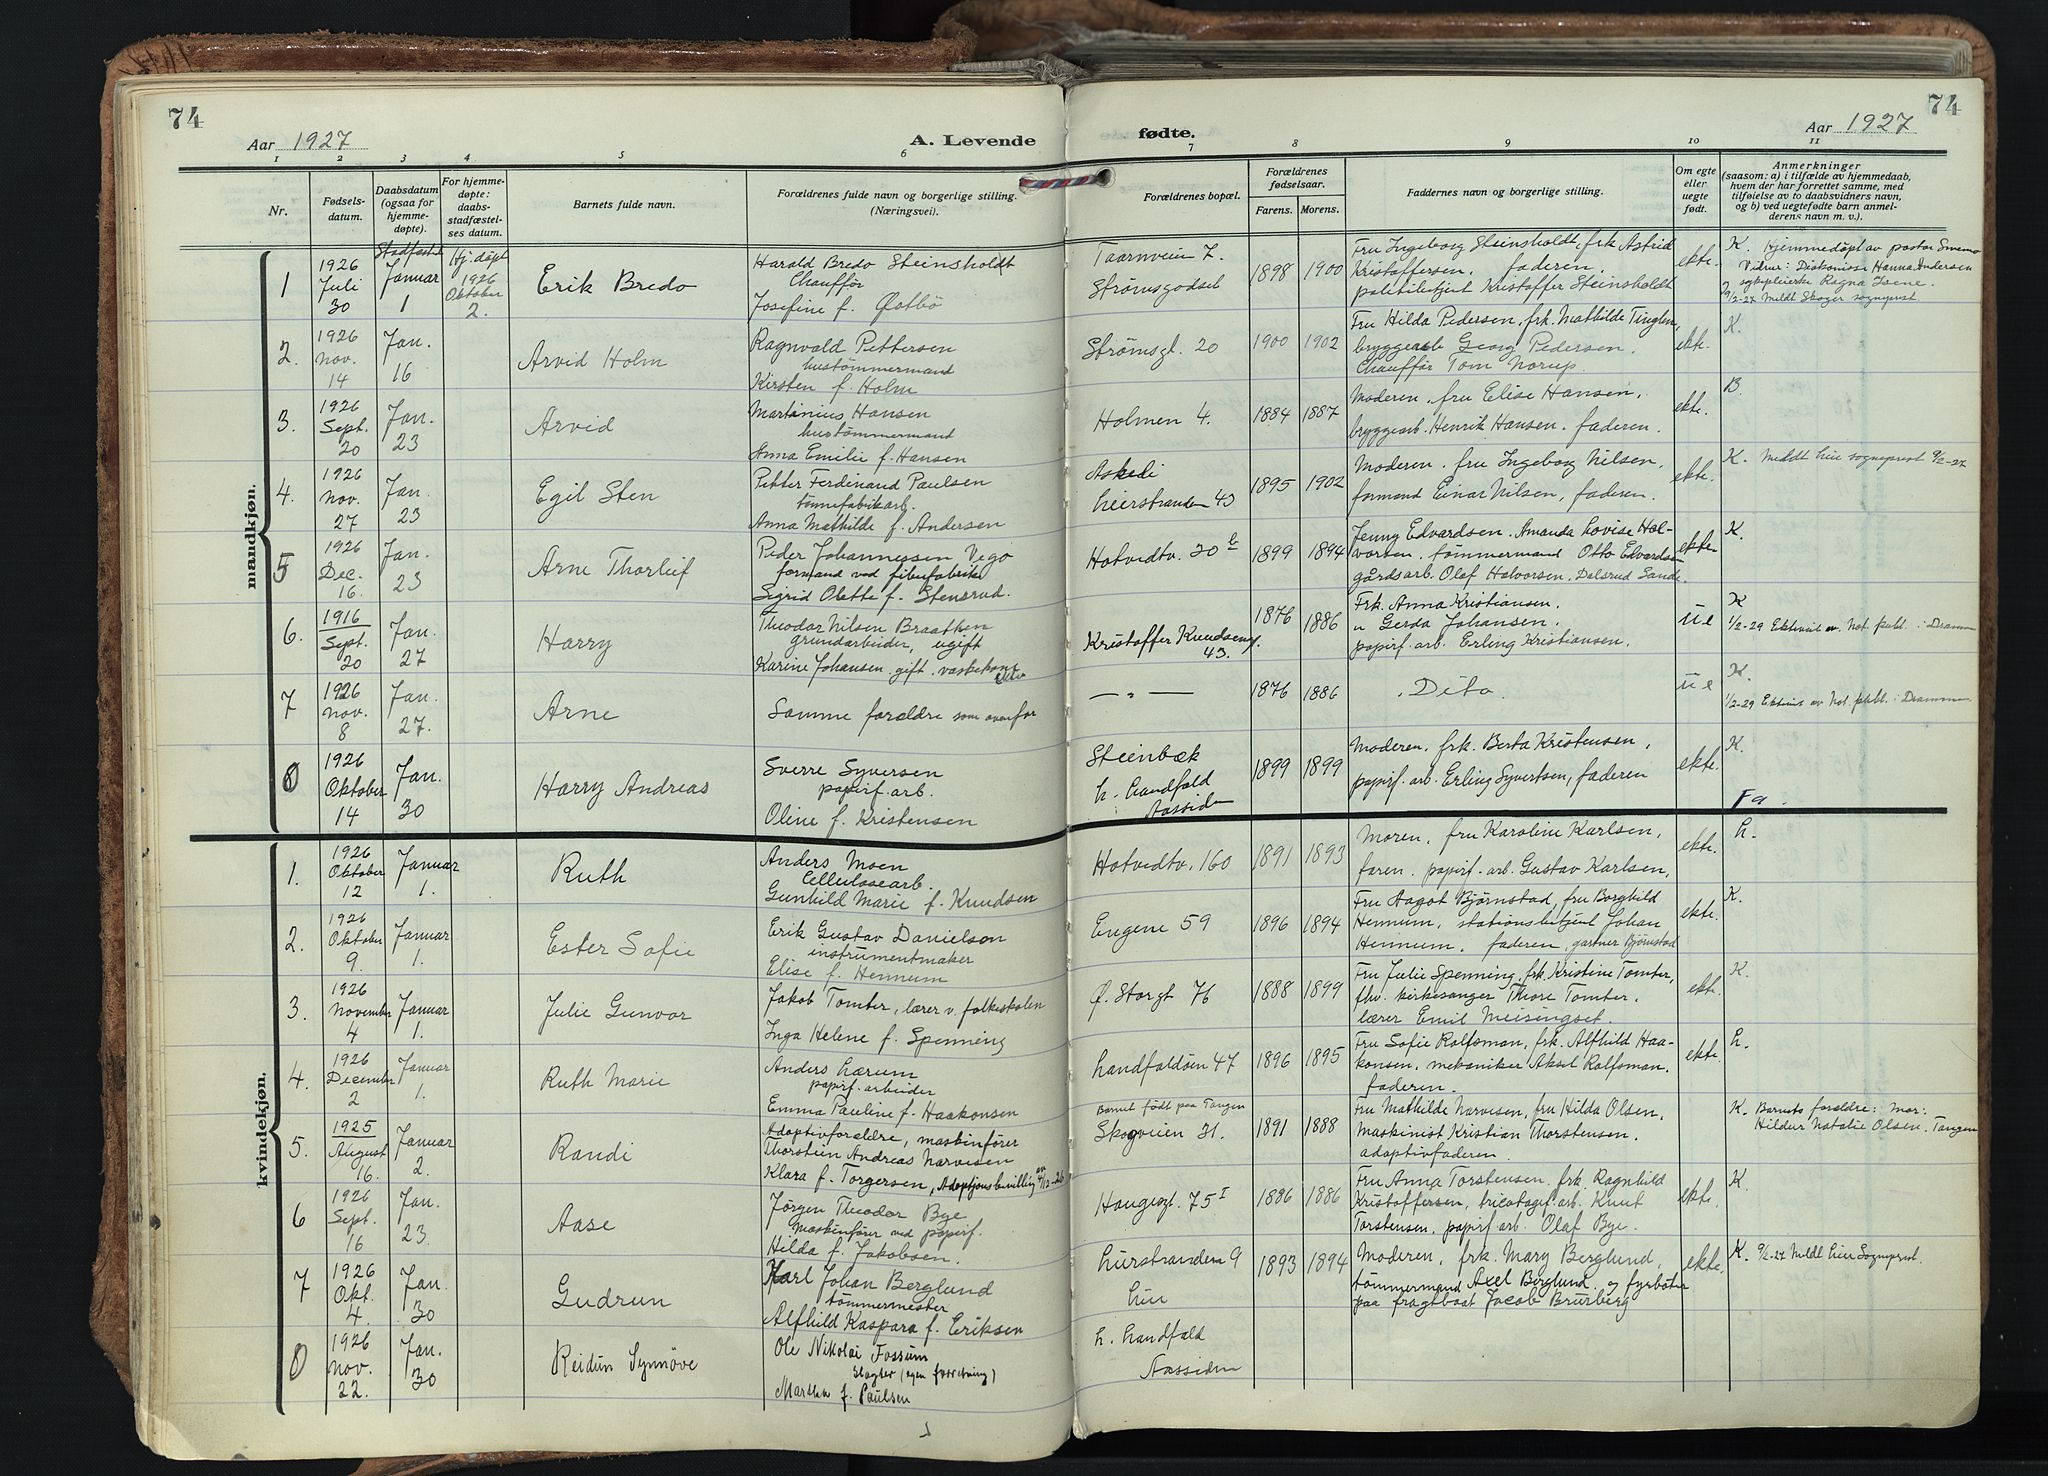 74
74
Aar 1927
A. Levende
fødte.
Aar 1927
1 2 3 4 5 6 7 8 9 10 11
Nr.
Fødsels-
datum.
Daabsdatum
(ogsaa for
hjemme-
døpte).
For hjemme-
døpte:
daabs-
stadfæstel-
ses datum.
Barnets fulde navn.
Forældrenes fulde navn og borgerlige stilling.
(Næringsvei).
Forældrenes bopæl.
Forældrenes
fødselsaar.
Farens. Morens.
Faddernes navn og borgerlige stilling.
Om egte
eller
uegte
født.
Anmerkninger
(saasom: a) i tilfælde av hjemmedaab,
hvem der har forrettet samme, med
tilføielse av to daabsvidners navn,
og b) ved uegtefødte barn anmel-
derens navn m. v.).
mandkjøn.
1
1926
Juli
30
Stadfestet
Januar
1
Hj. døpt
1926
Oktober
2.
Erik Bredo
Harald Bredo Steinsholdt
Chauffør
Josefine f. Østbö
Taarnveien 7.
Strömsgodset
1898 1900
Fru Ingeborg Steinsholdt, frk Astrid
Kristoffersen, faderen,
politibetjent Kristoffer Steinsholdt
ekte.
K. Hjemmedøpt av pastor
Vidner: Diakonisse Hanna Andersen
sykepleierske Ragna
9/2-27 Meldt Skoger sogneprest
2.
1926
Nov.
14
Jan.
16
Arvid Holm
Ragnvald Pettersen
hustømmermand
Kirsten f. Holm
Strömsgt. 20
1900 1902
Fru Hilda Pedersen, frk. Mathilde
bryggearb Georg Pedersen,
Chauffør Tom Norup.
ekte.
K.
3.
1926
Sept.
20
Jan.
23
Arvid
Martinius Hansen
hustømmermand
Anna Emilie f. Hansen
Holmen 4.
1884 1887
Moderen, fru Elise Hansen,
bryggearb. Henrik Hansen, faderen.
ekte.
B.
4.
1926
Nov.
27
Jan.
23
Egil Sten
Petter Ferdinand Paulsen
tønnefabrikarb.
Anna Mathilde f. Andersen
Lierstranden 43
1895 1902
Moderen, fru Ingeborg Nilsen,
formand Einar Nilsen, faderen.
ekte.
K. Meldt Lier sogneprest 9/2-27
5
1926
Dec.
16.
Jan.
23
Arne Thorleif
Peder Johannessen Vego
formand ved fiberfabrik
Sigrid Olette f. Stensrud.
Hotvedtv. 30 b
1899 1894
Jenny Edvardsen, Amanda Lovise Hal-
vorsen, tømmermand Otto Edvardsen
gårdsarb. Olaf Halvorsen, Dalsrud Sande.
ekte
K.
6.
1916
Sept.
20
Jan.
27
Harry
Theodor Nilsen Braathen
grundarbeider, ugift
Karine Johansen gift. vaskekone
Kristoffer Knudsensg.
43.
1876 1886
Frk. Anna Kristiansen,
" Gerda Johansen,
papirf. arb. Erling Kristiansen.
ue
K
1/2-29 av Not. publ. i Drammen
7
1926
Nov.
8
Jan.
27.
Arne
Samme forældre som ovenfor
— " —
1876 1886
Dito.
ue
K.
1/2-29 av Not. publ. i Drammen
8
1926
Oktober
14
Jan.
30
Harry Andreas
Sverre Syversen
papirf. arb.
Oline f. Kristensen
Steinbæk
L. Landfald
Aassiden
1899 1899
Moderen, frk. Berta Kristensen,
papirf. arb. Erling Syvertsen, faderen
ekte.
K.
Fa.
kvindekjøn.
1.
1926
Oktober
12
Januar
1.
Ruth
Anders Moen
Cellulosearb.
Gunhild Marie f. Knudsen
Hotvedtv. 160
1891 1893
Moren, fru Karoline Karlsen,
faren, papirf. arb. Gustav Karlsen,
ekte.
L.
2.
1926
Oktober
9.
Januar
1.
Ester Sofie
Erik Gustav Danielson
instrumentmaker
Elise f. Hennum
Engene 59
1896 1894
Fru Aagot Bjørnstad, fru Borghild
Hennum, stationsbetjent Johan
Hennum, faderen, gartner Bjørnstad
ekte.
K.
3.
1926
November
4
Januar
1.
Julie Gunvor
Jakob Tomter, lærer v. folkeskolen
Inga Helene f. Spenning
Ø. Storgt 76
1888 1899
Fru Julie Spenning, frk Kristine Tomter,
fhv. kirkesanger Thore Tomter,
lærer Emil Meisingset.
ekte.
K.
4.
1926
December
2
Januar
1.
Ruth Marie
Anders Lærum
papirf. arbeider
Emma Pauline f. Haakonsen
Landfaldöen 47
1896 1895
Fru Sofie Rolfsman, frk. Alfhild Haa-
konsen, mekaniker Aksel Rolfsman,
faderen.
ekte.
L.
5.
1925
August
16.
Januar
2.
Randi
Adoptivforældre, maskinfører
Thorstein Andreas Narvesen
Klara f. Torgersen, Adoptionsbevilling av 4/12-26
Barnet født paa Tangen
Skogveien 31.
1891 1888
Fru Mathilde Narvesen, fru Hilda Olsen,
Maskinist Kristian Thorstensen,
adoptivfaderen.
K. Barnets forældre: Mor:
Hildur Natalie Olsen, Tangen
6
1926
Sept.
16
Jan.
23.
Aase
Jørgen Theodor Bye
Maskinfører ved papirf.
Hilda f. Jakobsen.
Haugesgt. 75 I
1886 1886
Fru Anna Torstensen, frk Ragnhild
Kristoffersen, tricotagef. arb. Knut
Torstensen, papirf. arb. Olaf Bye.
ekte.
K.
7
1926
Okt.
4.
Jan.
30
Gudrun
Karl Johan Berglund
tømmermester
Alfhild Kaspara f. Eriksen
Lierstranden 9
Lier
1893 1894
Moderen, frk. Mary Berglund,
tømmermand Axel Berglund og fyrbøter
paa fragtbaat Jacob Brurberg
ekte.
K. 9/2-27 Meldt Lier Sogneprest.
8
1926
Nov.
22.
Jan.
30
Reidun Synnöve
Ole Nikolai Fossum
Slagter (egen forretning)
Martha f. Paulsen
L. Landfald
Aassiden